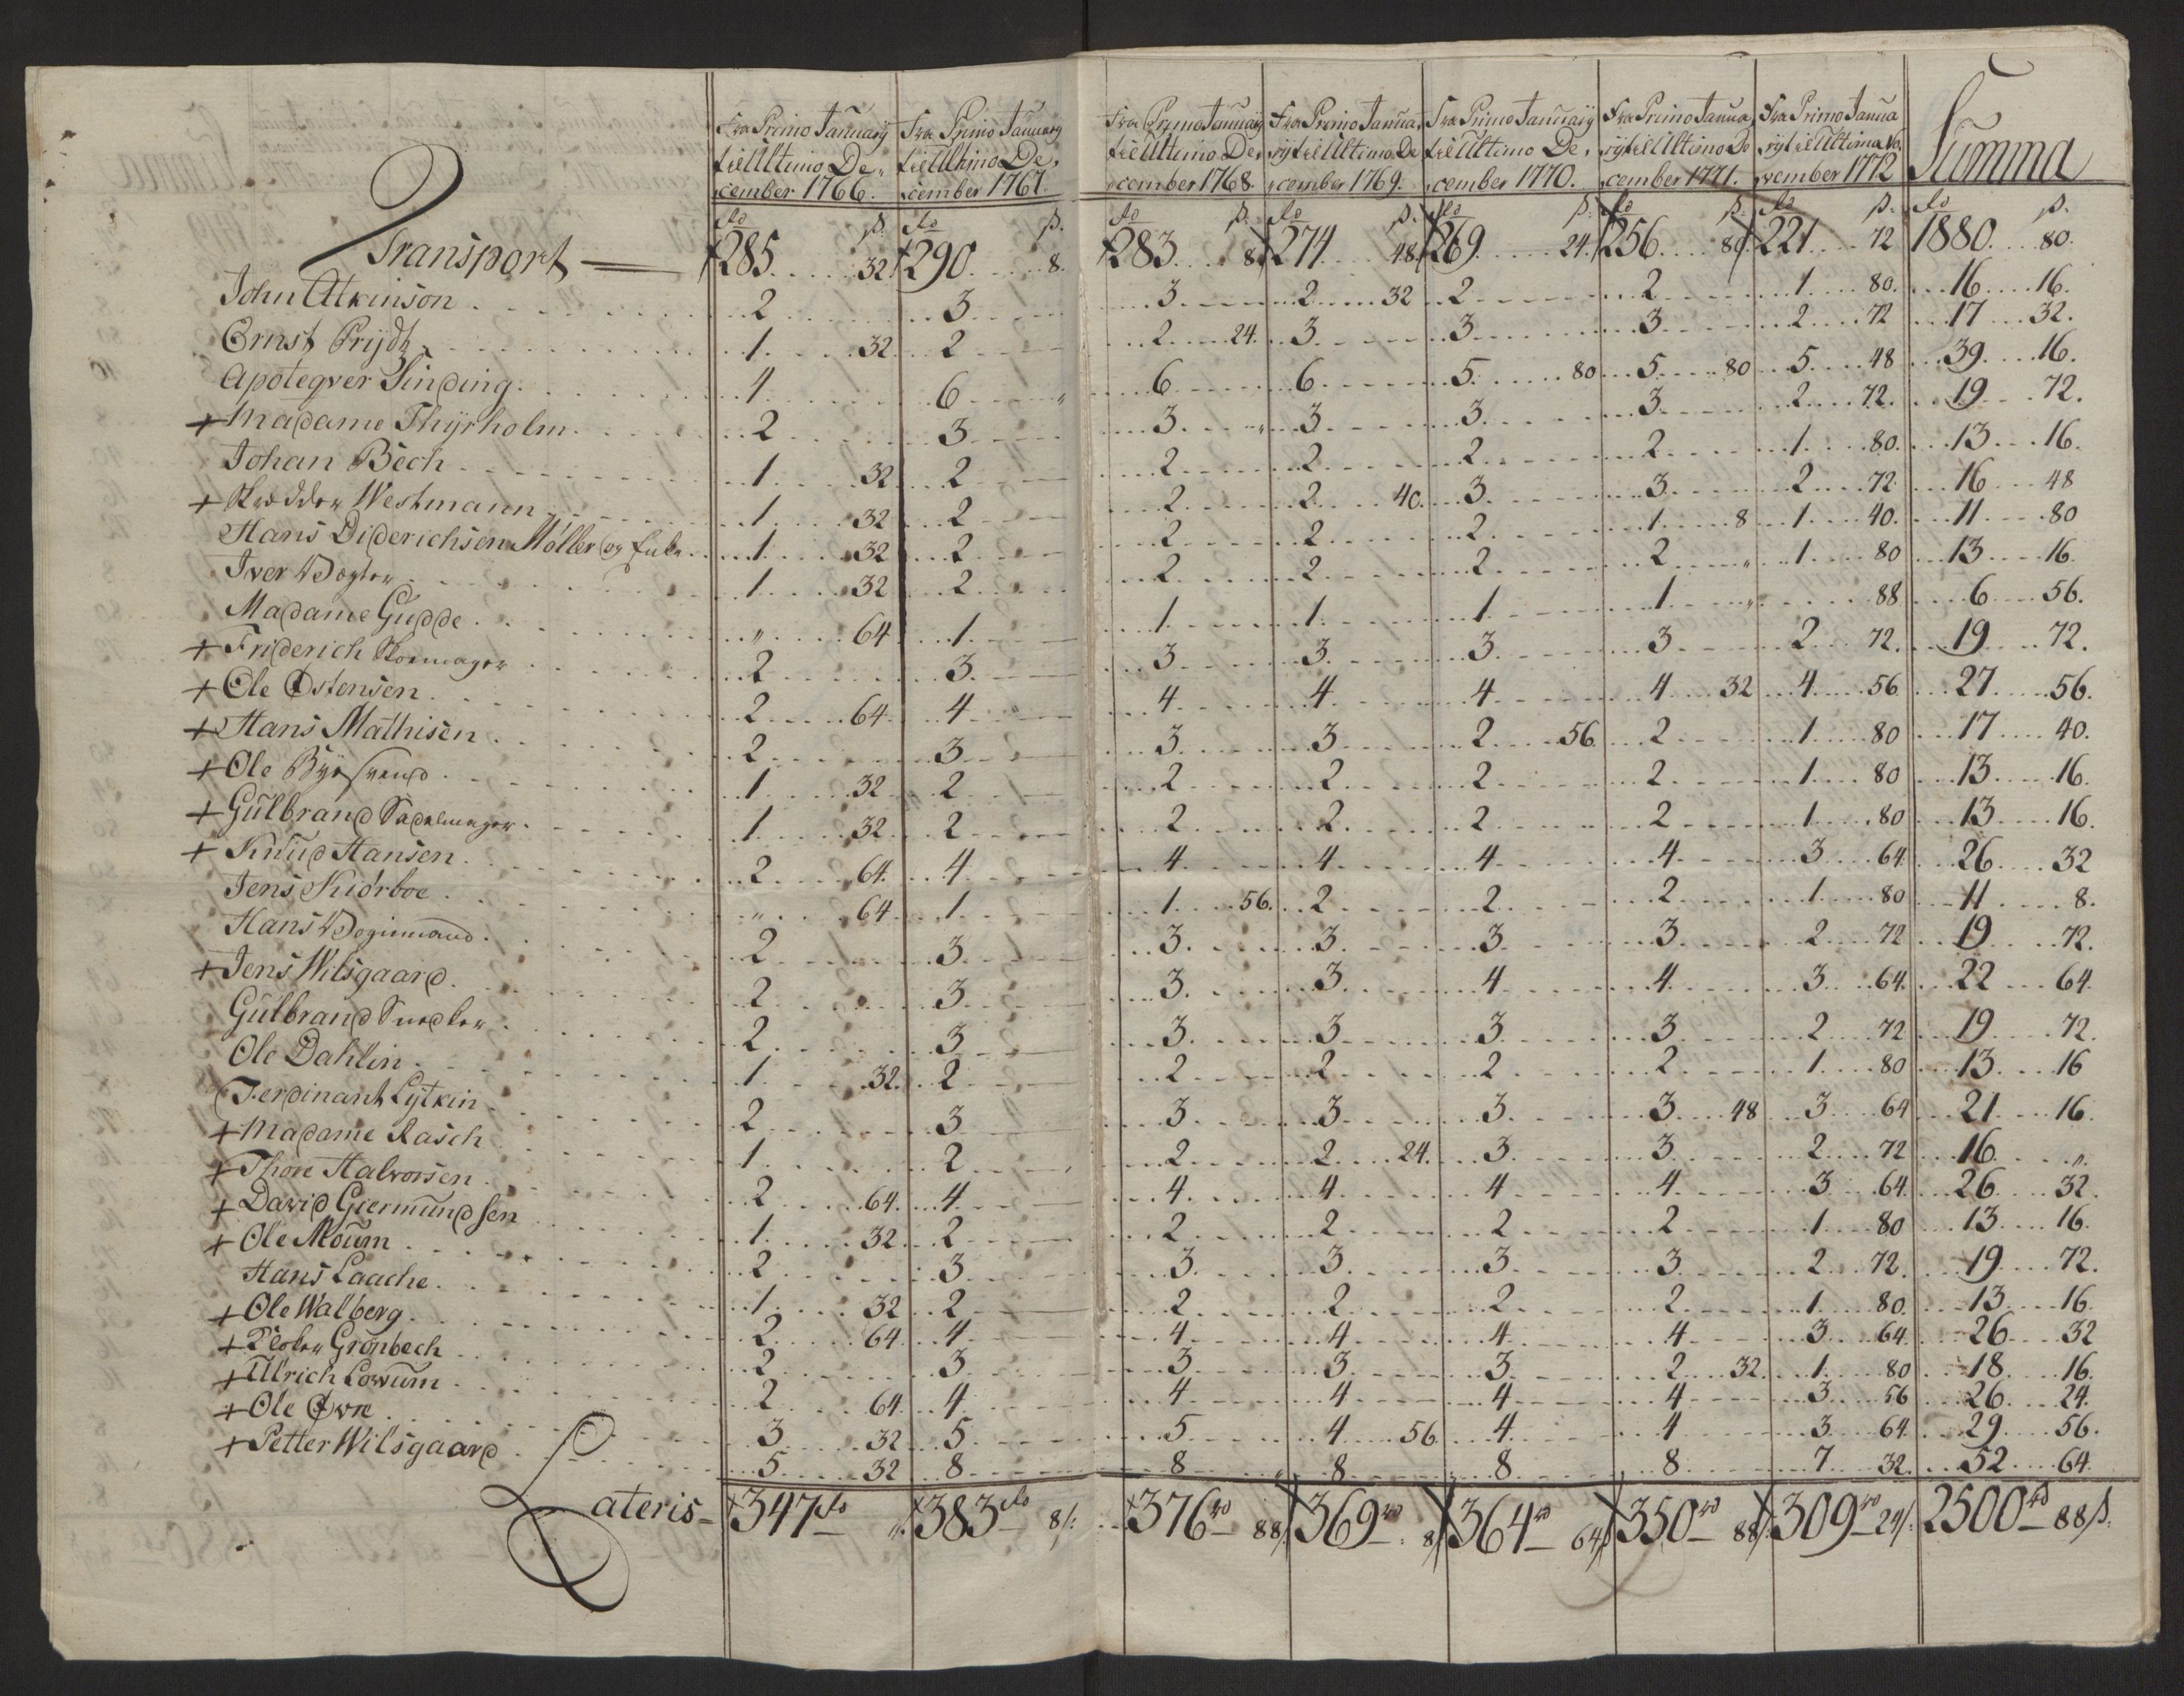 Fra Primo Januarÿ til Ultimo December 1766. Fra Primo Januarÿ til Ultimo December 1767. Fra Primo Januarÿ til Ultimo December 1768. Fra Primo Januarÿ til Ultimo December 1769. Fra Primo Januarÿ til Ultimo December 1770. Fra Primo Januarÿ til Ultimo December 1771. Fra Primo Januarÿ til Ultimo November 1772 Summa
Rd ß. Rd ß. Rd ß. Rd ß. Rd ß. Rd ß. Rd ß. Rd ß.
Transport 285 32 290 8. 283 8 274 48 269 24. 256 80 221 72 1880 80.
John Atkinson 2 3 3 2 32 2 2 1 80. 16 16.
Ernst Prÿdz 1 32 2 2 24. 3 3 3 2 72 17 32.
Apoteqver Sinding 4 6 " 6 6 5 80 5 80 5 48 39 16.
+ Madame Thÿrholm 2 3 3 " 3 3 3 2 72. 19 72.
Johan Bech 1 32 2 2 2 2 2 1 80. 13 16.
+ Skrædder Westmann 1 32 2 2 2 40. 3 3 2 72 16 48
Hans Diderichsen Møller og 1 32 2 2 2 2 1 8 1 40. 11 80
Iver Wogter 1 32 2 2 2 2 2 " 1 80 13 16.
Madame Gudde " 64 1 1 1 1 1 " 88 6 56.
+ Friderich Skoemager 2 3 3 3 3 3 2 72. 19 72.
+ Ole Østensen 2 64 4 4 4 4 4 32 4 56 27 56.
+ Hans Mathisen 2 3 3 3 2 56. 2 1 80 17 40.
+ Ole Byesvend 1 32 2 2 2 2 2 1 80 13 16.
+ Gulbrand Sadelmager 1 32 2 2 2 2 2 1 80 13 16.
+ Knud Hansen 2 64. 4 4 4 4 4 3 64. 26 32
Jens Kiørboe " 64 1 1 56. 2 2 2 1 80 11 8.
Hans Wognmand 2 3 3 3 3 3 2 72 19 72.
+ Jens Wilsgaard 2 3 3 3 4 4 3 64. 22 64.
Gulbrand Snedker 2 3 3 3 3 3 2 72 19 72.
Ole Dahlin 1 32. 2 2 2 2 2 1 80 13 16
Ferdinant Lÿtkin 2 3 3 3 3 3 48 3 64 21 16.
+ Madame Rasch 1 2 2 2 24. 3 3 2 72 16 "
+ Thore Halvorsen 2 64. 4 4 4 4 4 3 64. 26 32.
+ David Giermundsen 1 32 2 2 2 2 2 1 80 13 16.
+ Ole Moum 2 3 3 3 3 3 2 72. 19 72.
Hans Laache 1 32 2 2 2 2 2 1 80. 13 16.
+ Ole Walberg 2 64. 4 4 4 4 4 3 64. 26 32
+ Peder Grønbech 2 3 3 3 3 2 32. 1 80 18 16.
+ Ullrich Lowum 2 64. 4 4 4 4 4 3 56 26 24.
+ Ole Øvre 3 32 5 5 4 56. 4 4 3 64 29 56.
+ Petter Wilsgaard 5 32 8 8 8 8 8 7 32. 52 64.
Lateris 347 rd " 383 rd 8ß: 376 rd 88ß 369 rd 8ß 364 rd 64ß 350 rd 88ß 309 rd 24ß. 2500 rd 88ß.